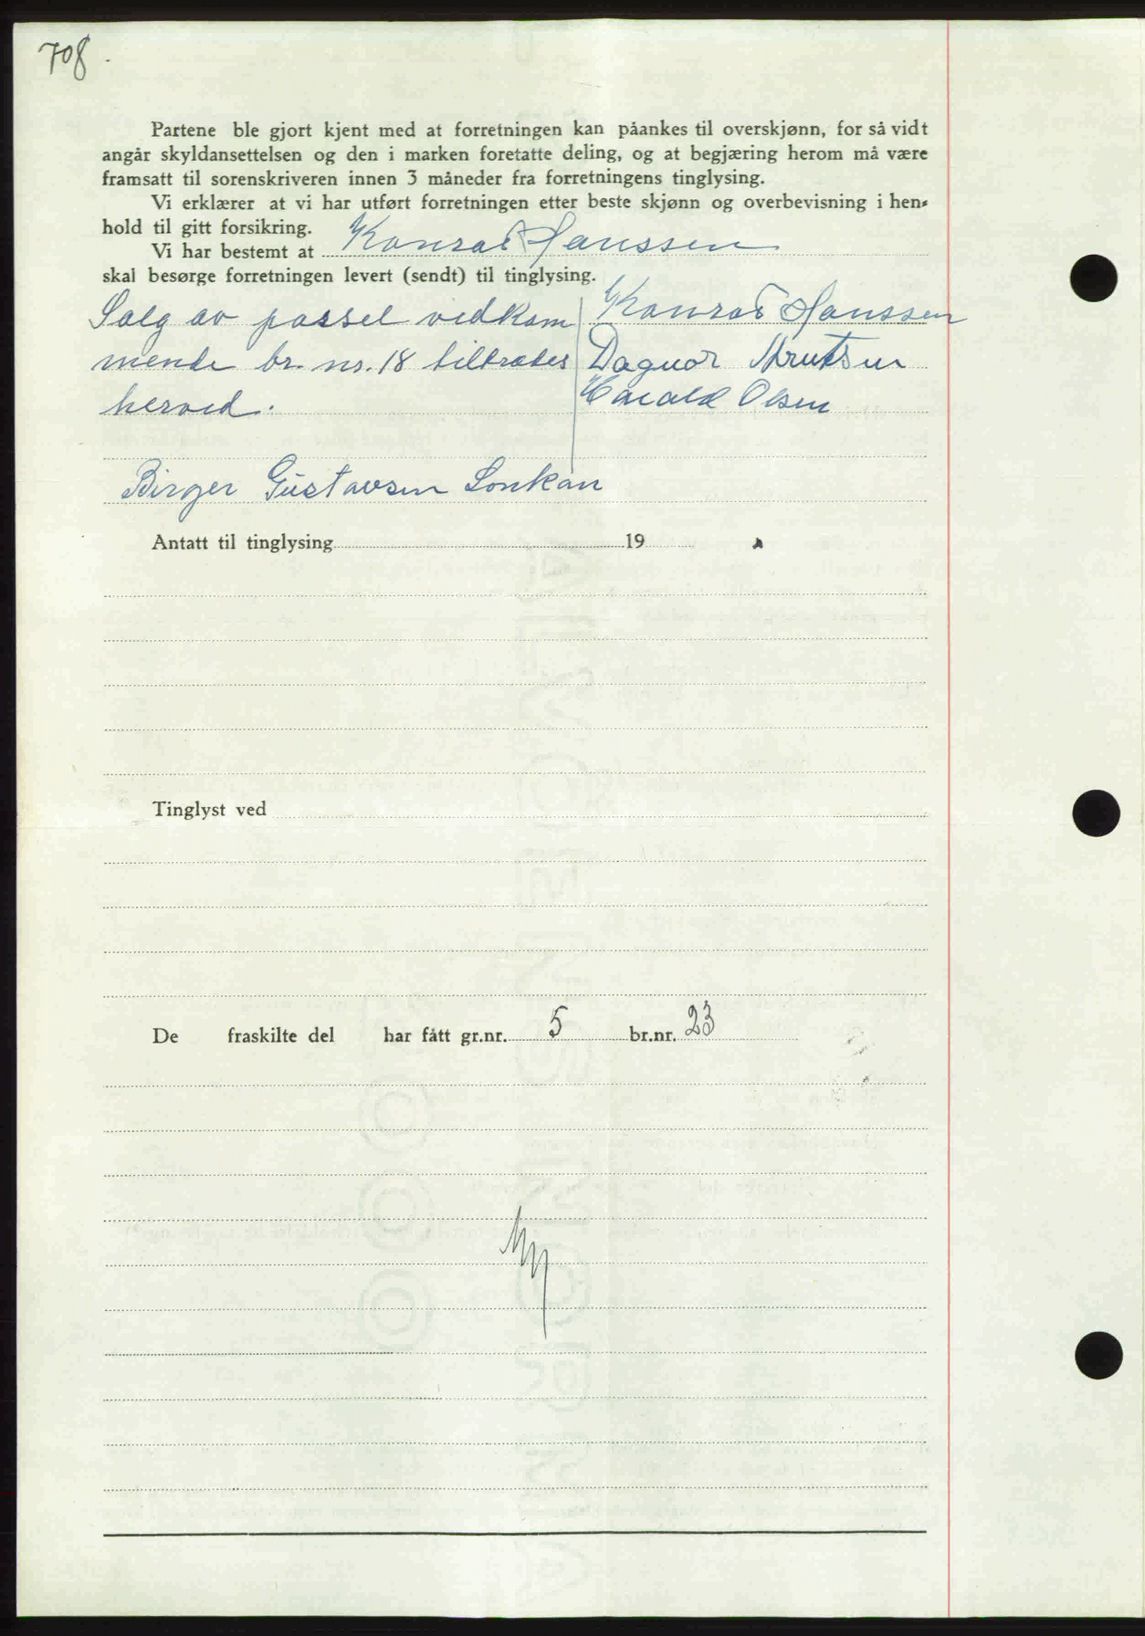 708
Partene ble gjort kjent med at forretningen kan påankes til overskjønn, for så vidt
angår skyldansettelsen og den i marken foretatte deling, og at begjæring herom må være
framsatt til sorenskriveren innen 3 måneder fra forretningens tinglysing.
Vi erklærer at vi har utført forretningen etter beste skjønn og overbevisning i hen-
hold til gitt forsikring.
Vi har bestemt at Konrad Hanssen
skal besørge forretningen levert (sendt) til tinglysing.
Salg av passel vedkom Konrad Hanssen
mende br. nr. 18 tiltrædes Dagnar Knutsen
herved. Harald Olsen
Birger Gustavsen Sonkan
Antatt til tinglysing 19
Tinglyst ved
De fraskilte del har fått gr.nr. 5 br.nr. 23